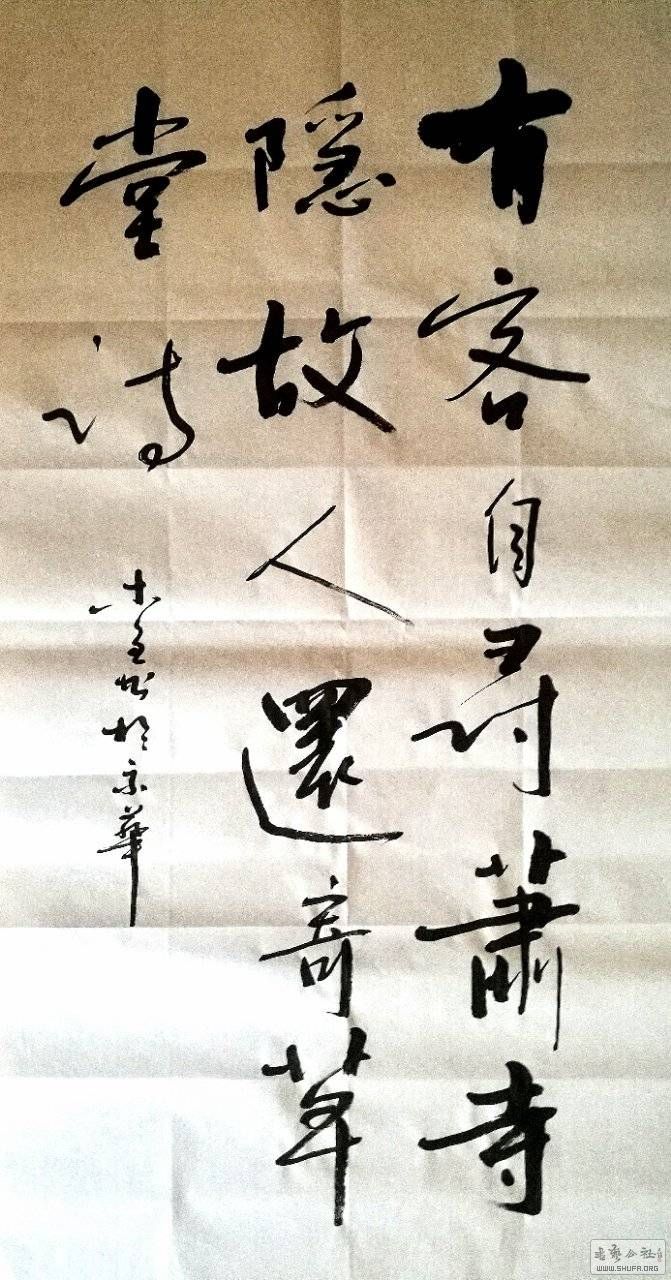 有客自尋蕭寺
隱故人還寄草
堂詩
於京華
WWW.SHUFA.ORG